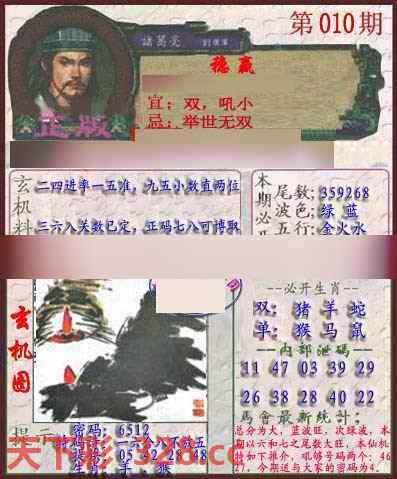 第010期
諸葛亮
穩贏
宜：双，吼小
忌：举世无双
正版
玄机料
二四进率一五准，九五小数直两位
三六八关数已定，正码七八可博取
本期必开
尾数:359268
波色:绿 蓝
五行:金火水
玄机图
--必开生肖--
双: 猪 羊 蛇
单: 猴 马 鼠
--内部泄码--
11 47 03 39 29
26 38 28 40 22
馬會最新統计:
总分为大，蓝波旺，次绿波，本
期以六和七之尾数大旺，本仙机
特如下推介，吼够号码两个：46
27，今期送与大家的密码为4.
提示
密码: 6512
05 42 28 48
天下彩-328.cc